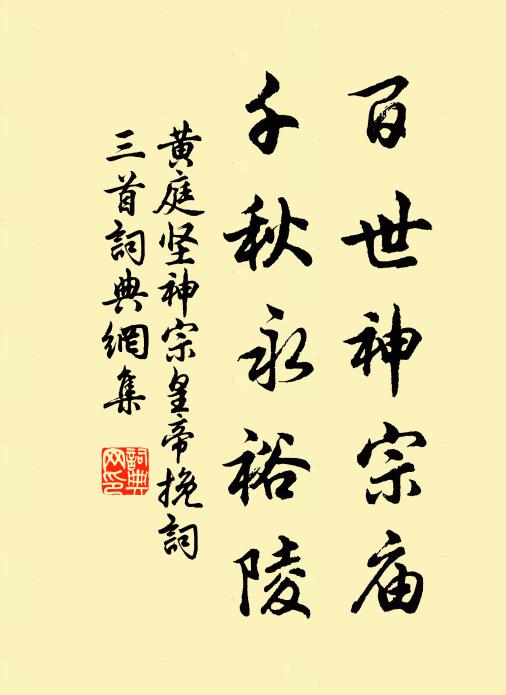 百世神宗庙
千秋永裕陵
黄庭坚神宗皇帝挽詞
三首詞典網集
詞典網印